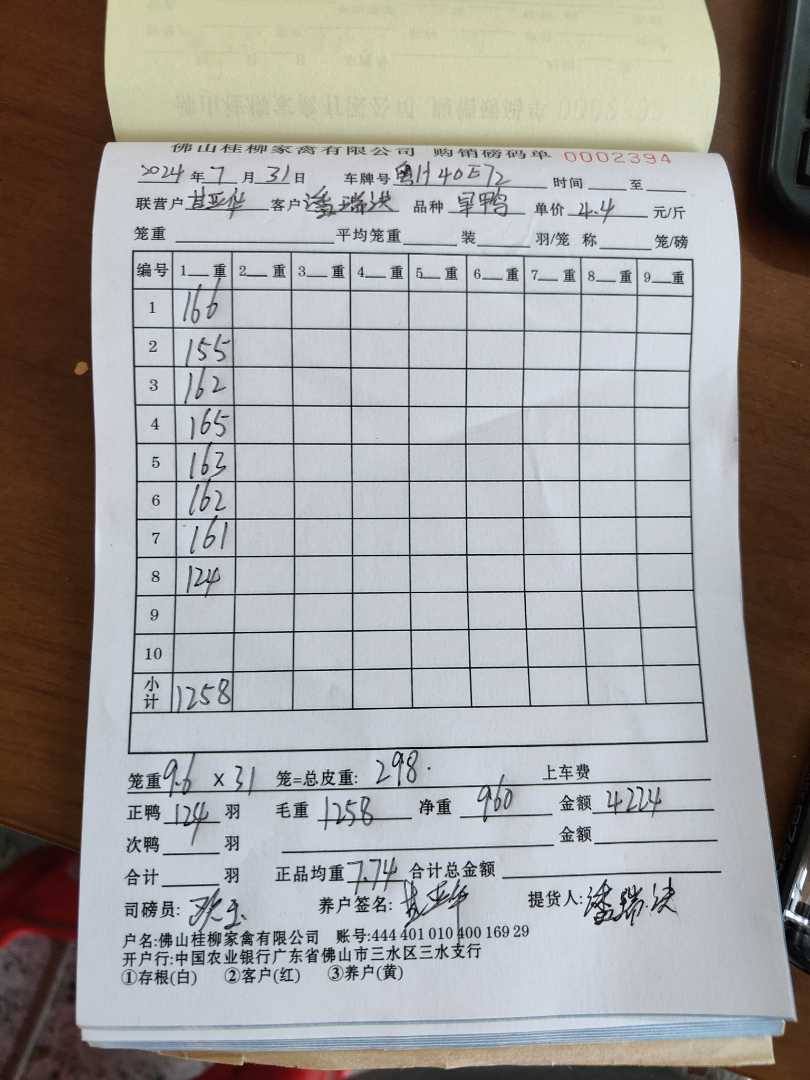 佛山桂柳家禽有限公司 购销磅码单 0002394
2024年7月31日 车牌号 粤H40E72 时间 至
联营户 甘亚华 客户 潘瑞洪 品种 旱鸭 单价 4.4 元/斤
笼重 平均笼重 装 羽/笼 称 笼/磅
编号 1 重 2 重 3 重 4 重 5 重 6 重 7 重 8 重 9 重
1 166
2 155
3 162
4 165
5 163
6 162
7 161
8 124
9
10
小计 1258
笼重 9.6 X 31 笼=总皮重: 298. 上车费
正鸭 124 羽 毛重 1258 净重 960 金额 4224
次鸭 羽 金额
合计 羽 正品均重 7.74 合计总金额
司磅员: 养户签名: 甘亚华 提货人: 潘瑞洪
户名:佛山桂柳家禽有限公司 账号:444 401 010 400 169 29
开户行:中国农业银行广东省佛山市三水区三水支行
①存根(白) ②客户(红) ③养户(黄)